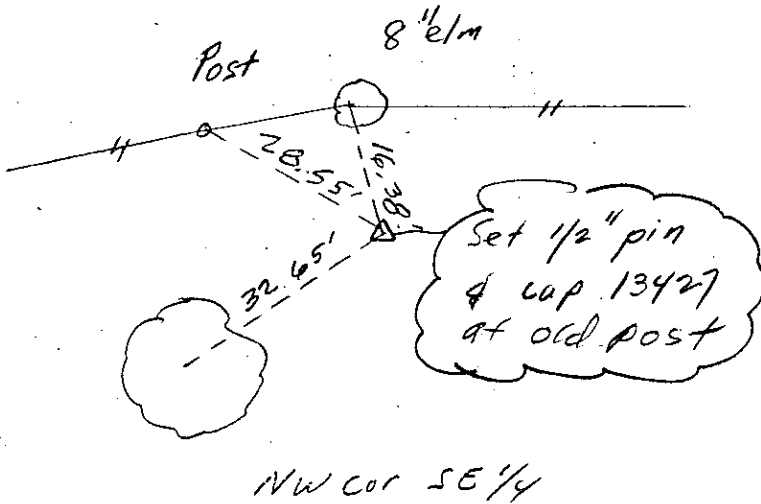 8" elm
Post
28.55'
16.38'
32.65'
Set 1/2" pin
& cap 13427
at old post
NW cor SE 1/4